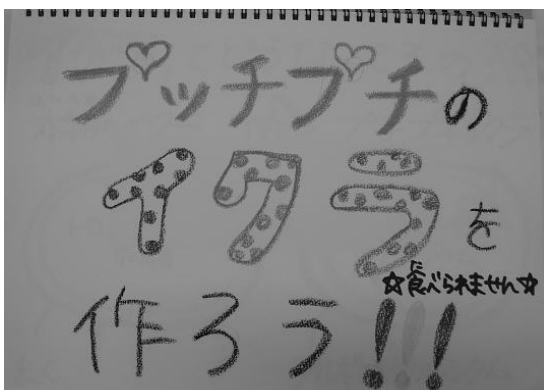 プッチプチの
イクラを
☆食べられません☆
作ろう!!!